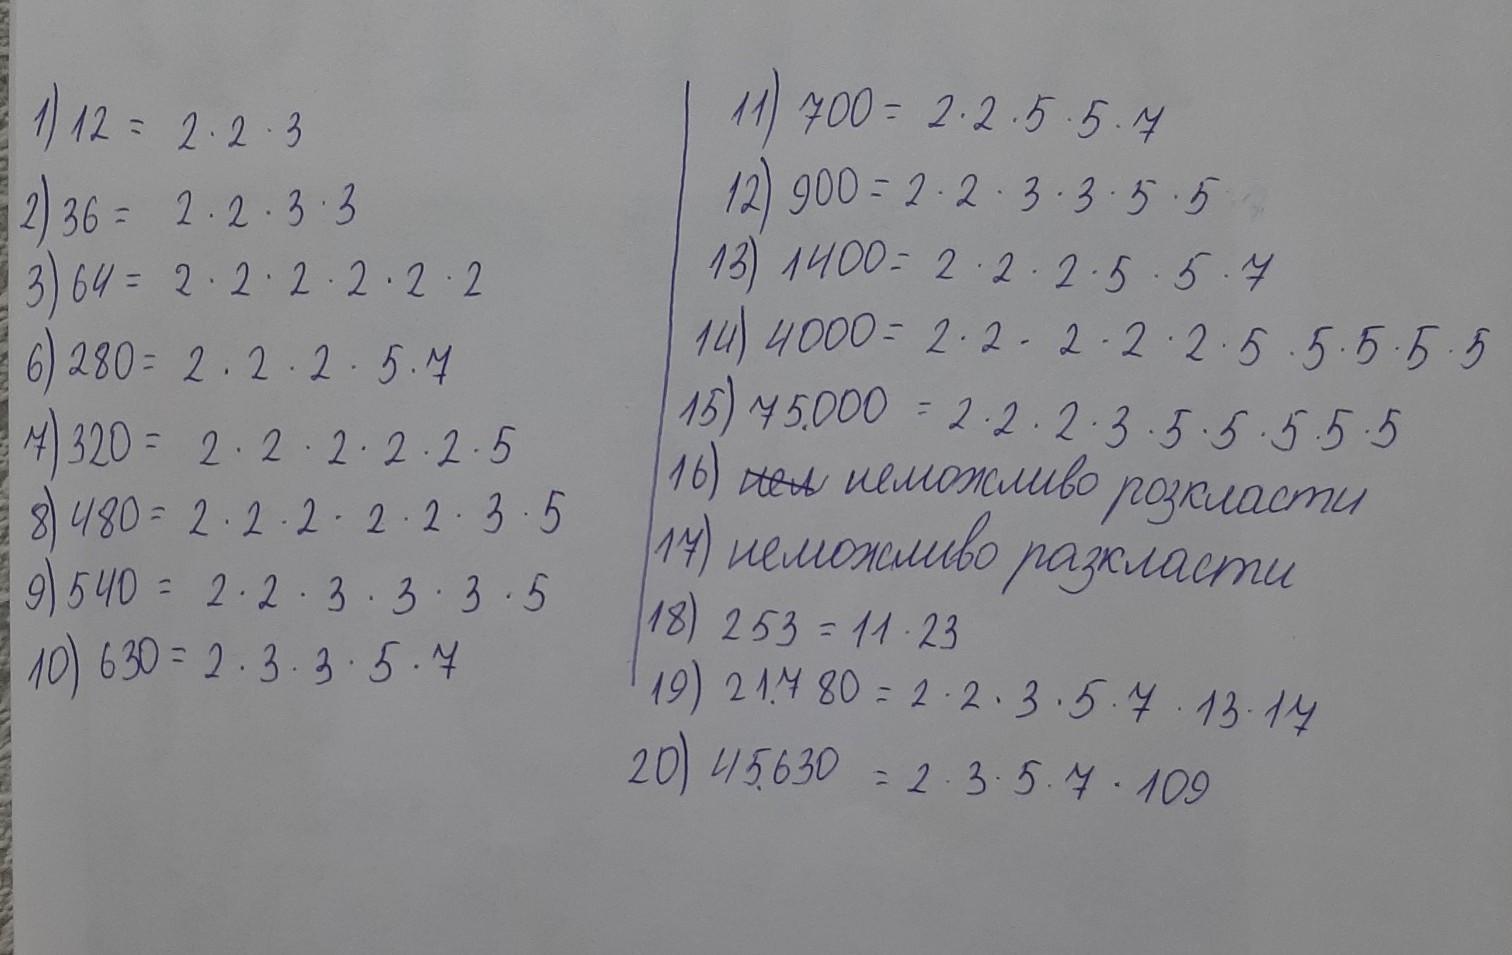 1) 12 = 2 · 2 · 3
2) 36 = 2 · 2 · 3 · 3
3) 64 = 2 · 2 · 2 · 2 · 2 · 2
6) 280 = 2 · 2 · 2 · 5 · 7
7) 320 = 2 · 2 · 2 · 2 · 2 · 5
8) 480 = 2 · 2 · 2 · 2 · 2 · 3 · 5
9) 540 = 2 · 2 · 3 · 3 · 3 · 5
10) 630 = 2 · 3 · 3 · 5 · 7
11) 700 = 2 · 2 · 5 · 5 · 7
12) 900 = 2 · 2 · 3 · 3 · 5 · 5
13) 1400 = 2 · 2 · 2 · 5 · 5 · 7
14) 4000 = 2 · 2 · 2 · 2 · 2 · 5 · 5 · 5 · 5 · 5
15) 75.000 = 2 · 2 · 2 · 3 · 5 · 5 · 5 · 5 · 5
16) неможливо розкласти
17) неможливо разкласти
18) 253 = 11 · 23
19) 21.780 = 2 · 2 · 3 · 5 · 7 · 13 · 17
20) 45.630 = 2 · 3 · 5 · 7 · 109